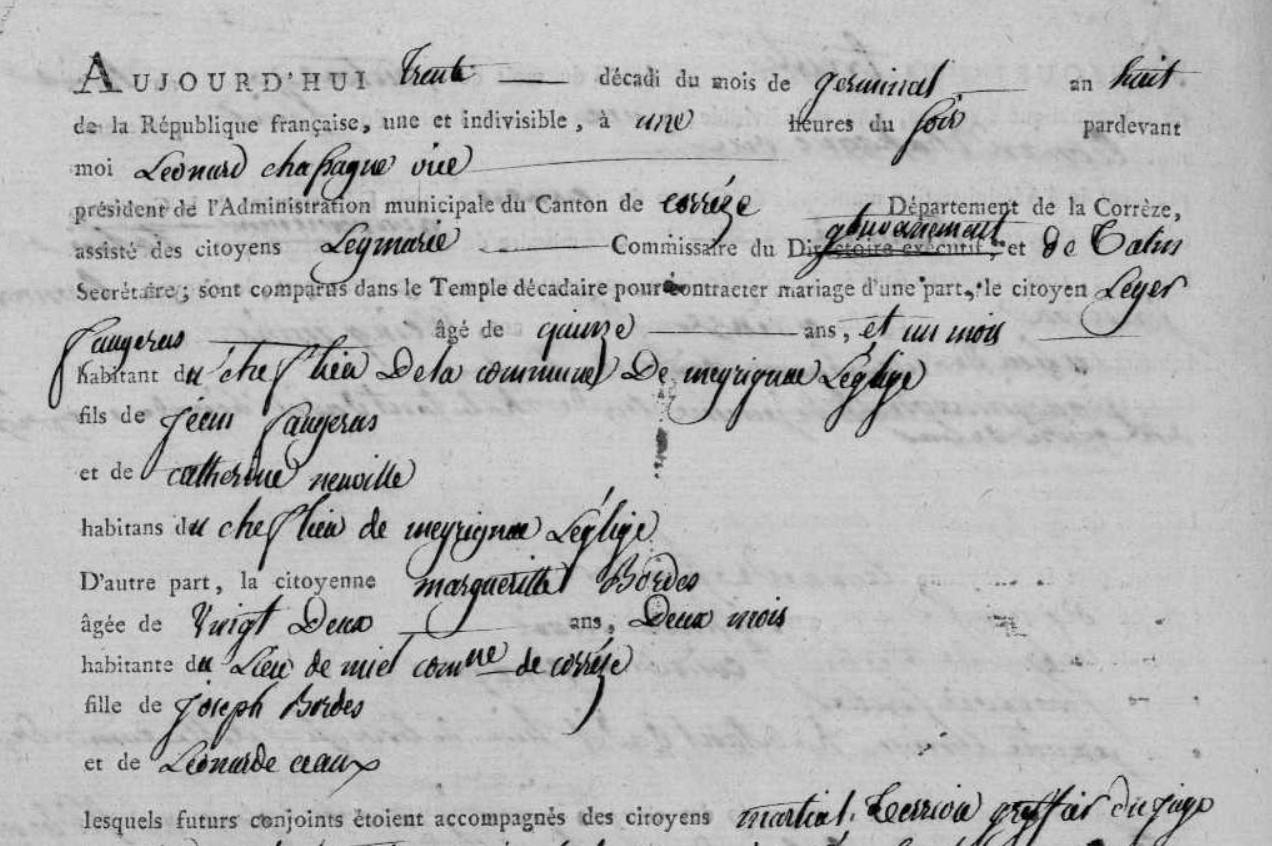 AUJOURD'HUI trente décadi du mois de germinal an huit
de la République française, une et indivisible, à une heures du soir pardevant
moi Leonard chassagne vice
président de l'Administration municipale du Canton de corréze Département de la Corrèze,
gouvernement
assisté des citoyens Leymarie Commissaire du Directoire exécutif, et de
Secrétaire; sont comparus dans le Temple décadaire pour contracter mariage d'une part, le citoyen Leger
faugeras âgé de quinze ans, et un mois
habitant du chef lieu De la commune De meyrignac Léglize
fils de faugeras
et de catherine neuville
habitans du chef lieu de meyrignac Léglize
D'autre part, la citoyenne margueritte Bordes
âgée de Vingt Deux ans, Deux mois
habitante du Lieu de miel comune de corréze
fille de joseph Bordes
et de Léonarde ceaux
lesquels futurs conjoints étoient accompagnés des citoyens martial greffier du juge